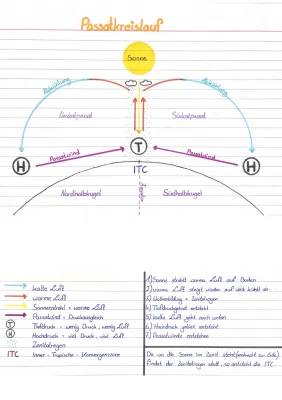 Passatkreislauf
Sonne
Abkühlung
Abkühlung
Nordostpassat
Südostpassat
Passatwind
Passatwind
T
H
H
ITC
Äquator
Nordhalbkugel
Südhalbkugel
kalte Luft
warme Luft
Sonnenstrahl = warme Luft
Passatwind = Druckausgleich
T
Tiefdruck = wenig Druck, wenig Luft
H
Hochdruck = viel Druck, viel Luft
Zenitalregen
ITC
Inner - Tropische - Konvergenzzone
1) Sonne strahlt warme Luft auf Boden
2) warme Luft steigt wieder auf und kühlt ab
3) Wolkenbildung + Zenitalregen
4) Tiefdruckgebiet entsteht
5) kalte Luft geht nach unten
6) Hochdruck gebiet entsteht
7) Passatwinde entstehen
Da wo die Sonne im Zenit steht (senkrecht zur Erde),
findet der Zenitalregen statt, so entsteht die ITC.